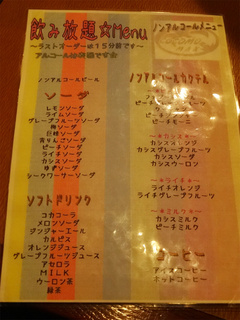 飲み放題☆Menu
～ラストオーダーは15分前です～
アルコールは別途です☆
ノンアルコールビール
ソーダ
レモンソーダ
ライムソーダ
グレープフルーツソーダ
梅ソーダ
巨峰ソーダ
青りんごソーダ
ピーチソーダ
ライチソーダ
カシスソーダ
ゆずソーダ
シークワーサーソーダ
ソフトドリンク
コカコーラ
メロンソーダ
ジンジャーエール
カルピス
オレンジジュース
グレープフルーツジュース
アセロラ
MILK
ウーロン茶
緑茶
ノンアルコールメニュー
ノンアルコールカクテル
ピーチモーニ
～★カシス★～
カシスオレンジ
カシスグレープフルーツ
カシスウーロン
～★ライチ★～
ライチオレンジ
ライチグレープフルーツ
～★ミルク★～
カシスミルク
ピーチミルク
コーヒー
アイスコーヒー
ホットコーヒー